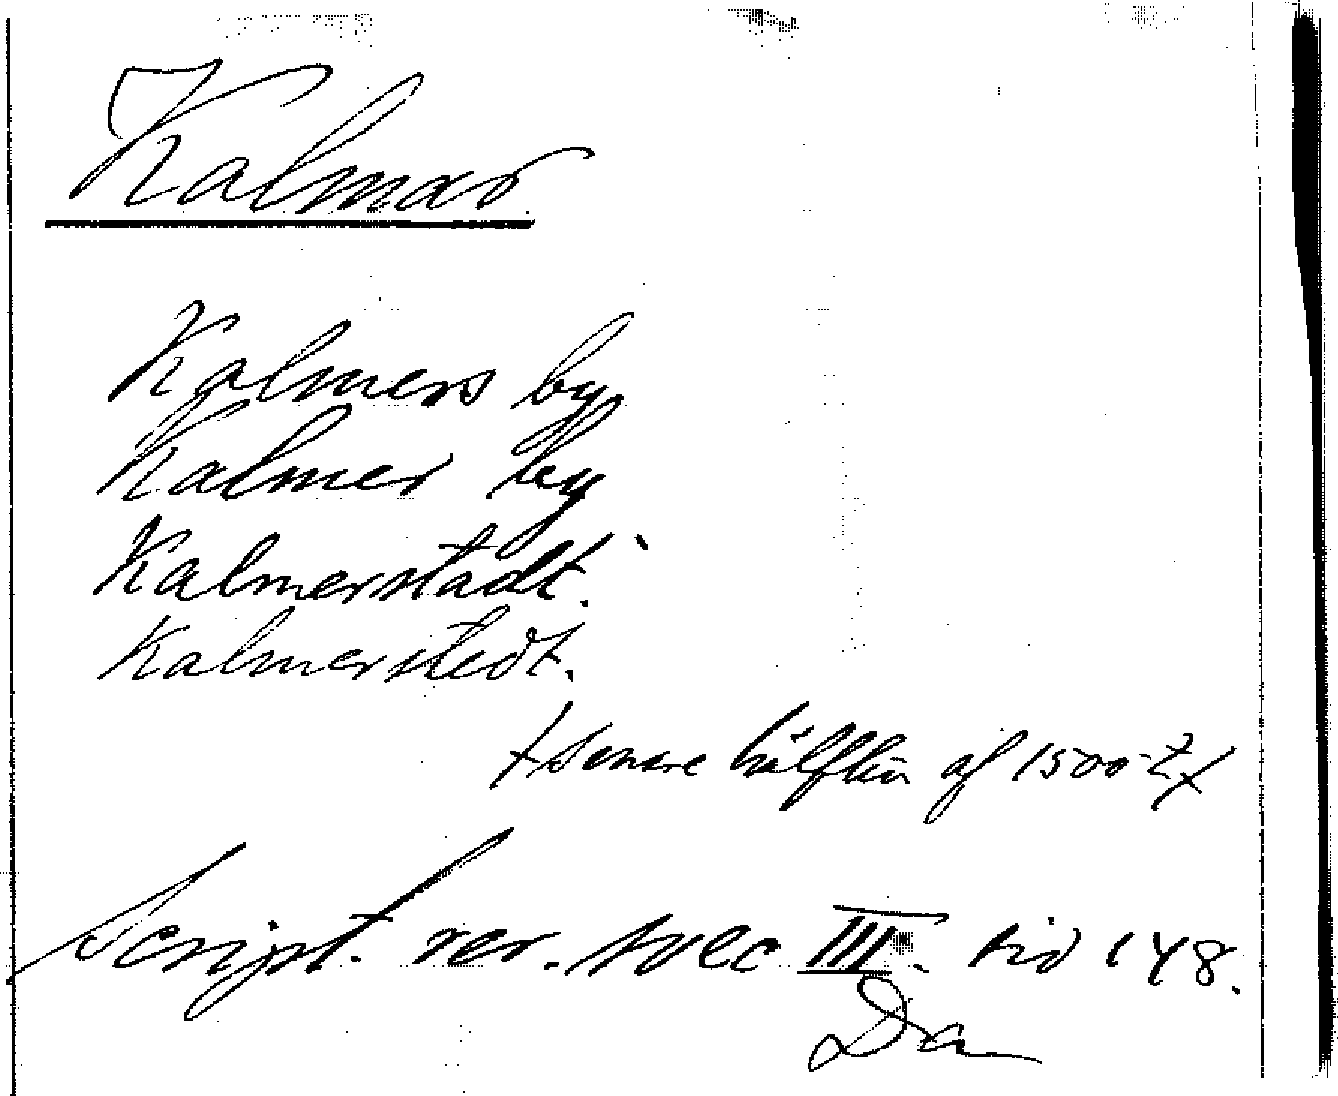 Kalmar
Kalmers by
Kalmer by
Kalmerstadt.
Kalmerstedt.
senare hälften af 1500-t
Script. rer. svec III. sid 148.
Da